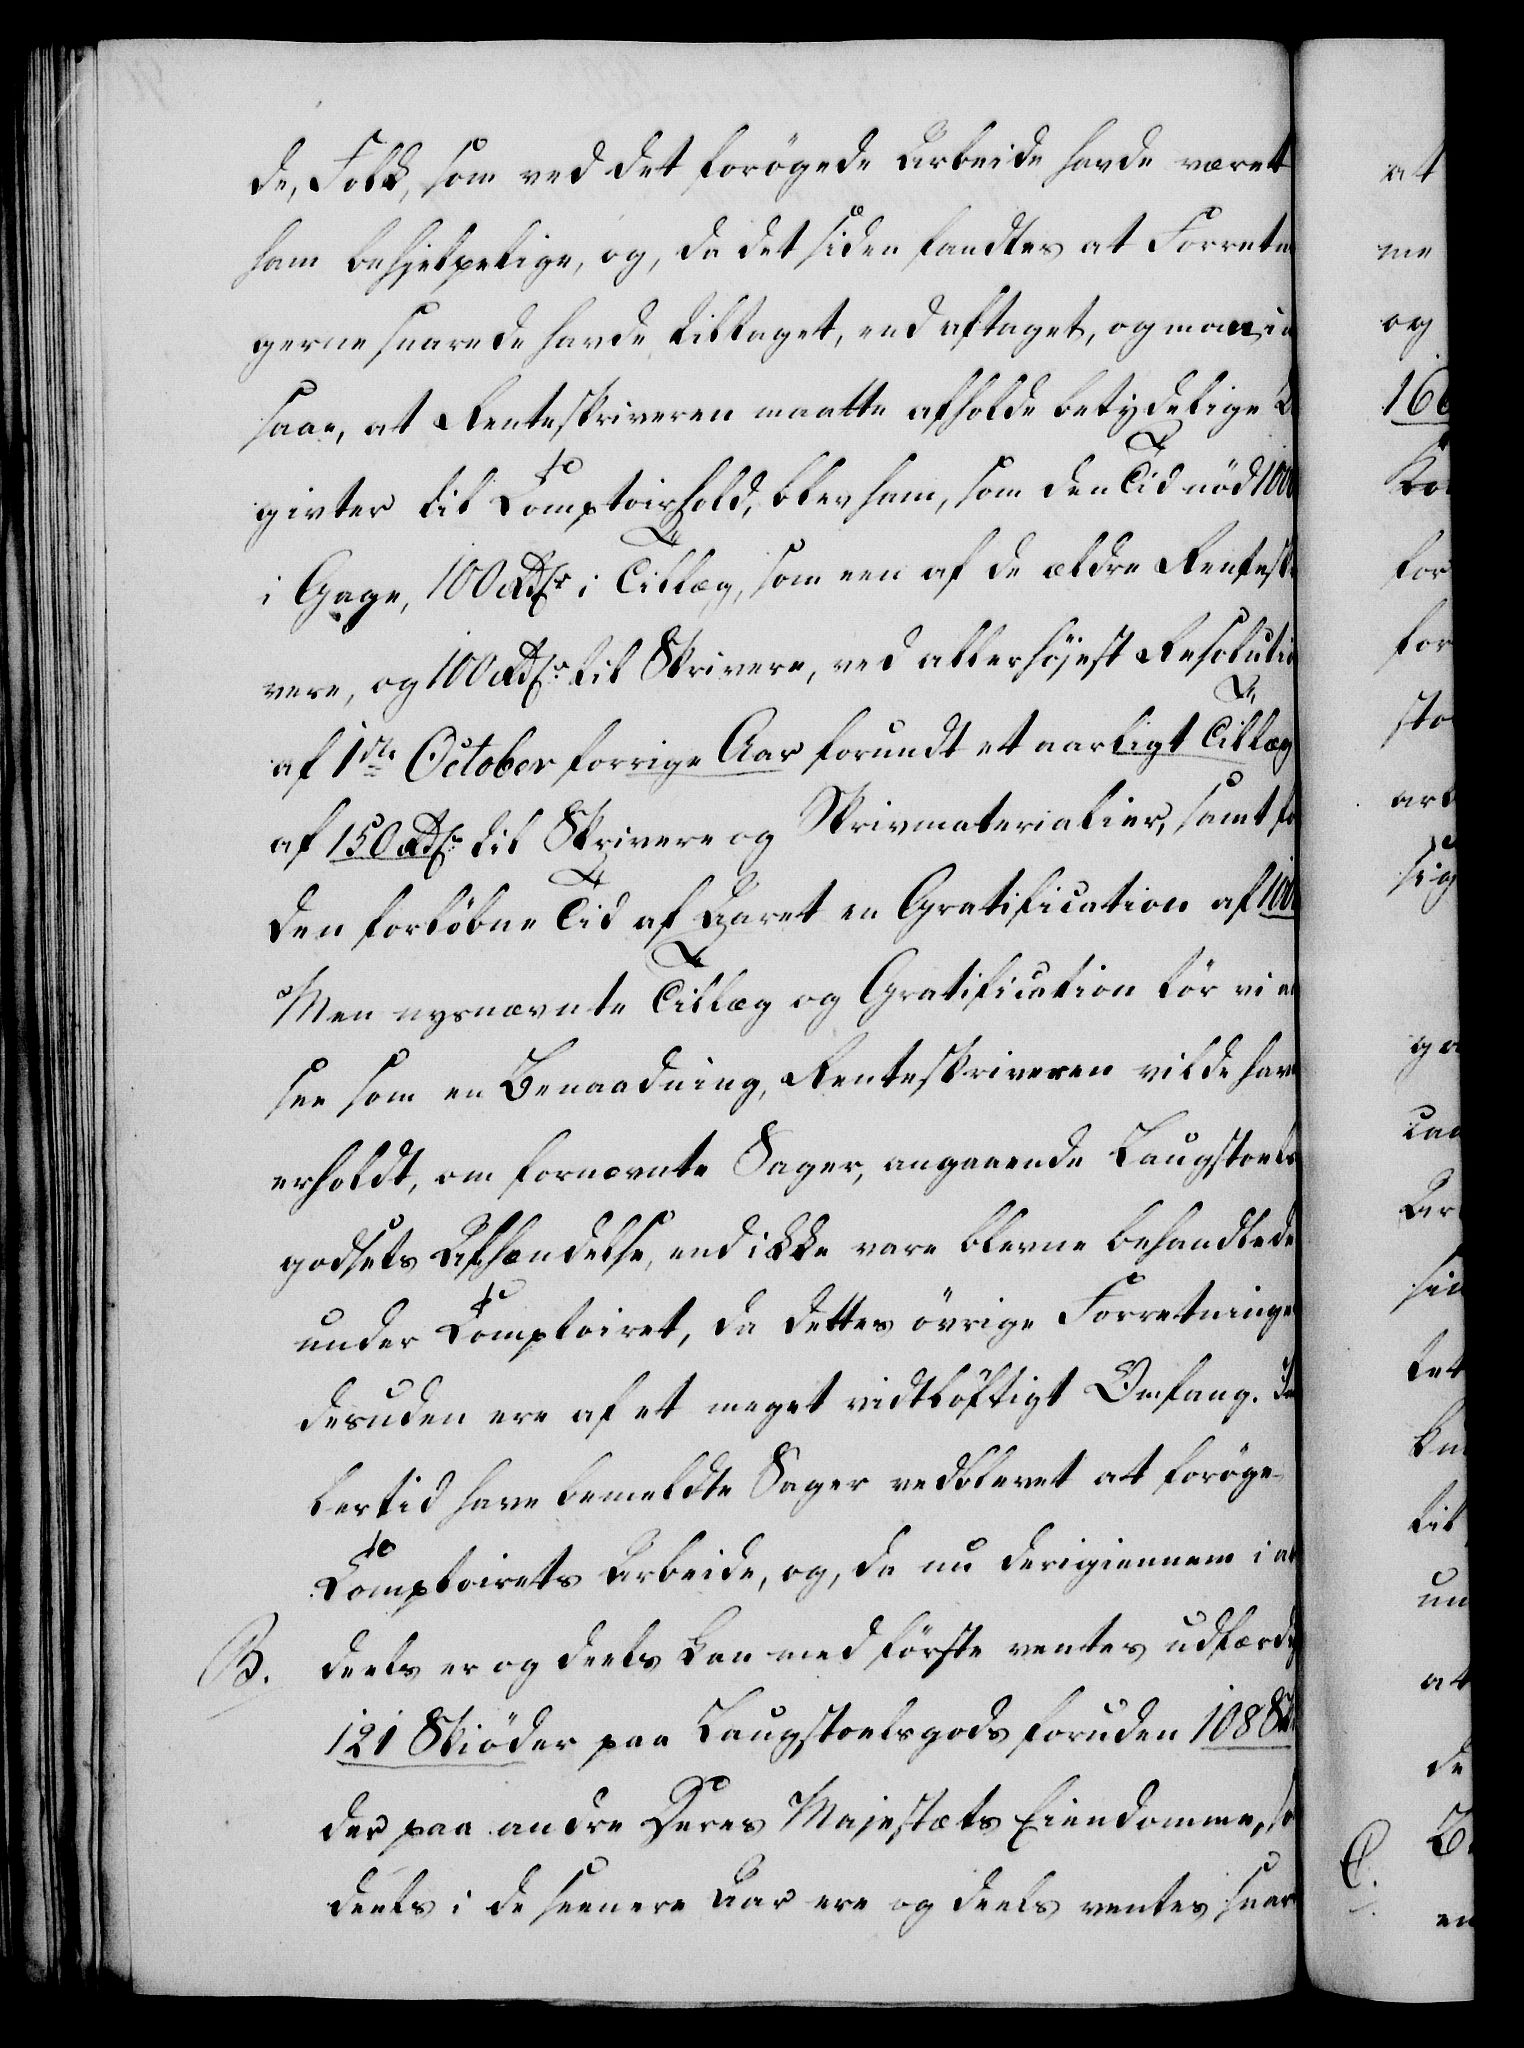 de, Folk, som ved det forøgede Arbeide havde været
ham behjelpelige, og, da det siden fandtes at Forretn
gerne snarede havde tiltaget, end aftaget, og man i
saae, at Renteskriveren maatte afholde betydelige U
givter til Comptoirhold, blev ham, som den Tid nød 100
i Gage, 100 Rdlr i Tillæg, som een af de ældre Rentesk
vere, og 100 Rdlr til Skrivere, ved allerhøjest Resoluti
af 1ste October forrige Aar forundt et aarligt Tillæg
af 150 Rdlr til Skrivere og Skrivmaterialier, samt fo
den forløbne Tid af Aaret en Gratification af 100
Men nysnævnte Tillæg og Gratification tør vi an
see som en Benaadning, Renteskriveren vilde hav
erholdt, om fornævnte Sager, angaaende Laugstoels
godsets Afhændelse, end ikke vare blevne behandlede
under Comptoiret, da dettes øvrige Forretninge
desuden ere af et meget vidtløftigt Omfang. Im
lertid have bemeldte Sager vedblevet at forøge
Comptoirets Arbeide, og, da nu derigiennem i a
B. deels er og deels kan med første ventes udfærdi
121 Skiøder paa Laugstoelsgods foruden 108 Sk
der paa andre Deres Majestæts Eiendomme, so
deels i de seenere Aar ere og deels ventes snar
at
me
og
16
Ko
for
for
sto
arb
sig
ga
caa
Ar
sin
let
kun
til
un
at
de
C. B
en